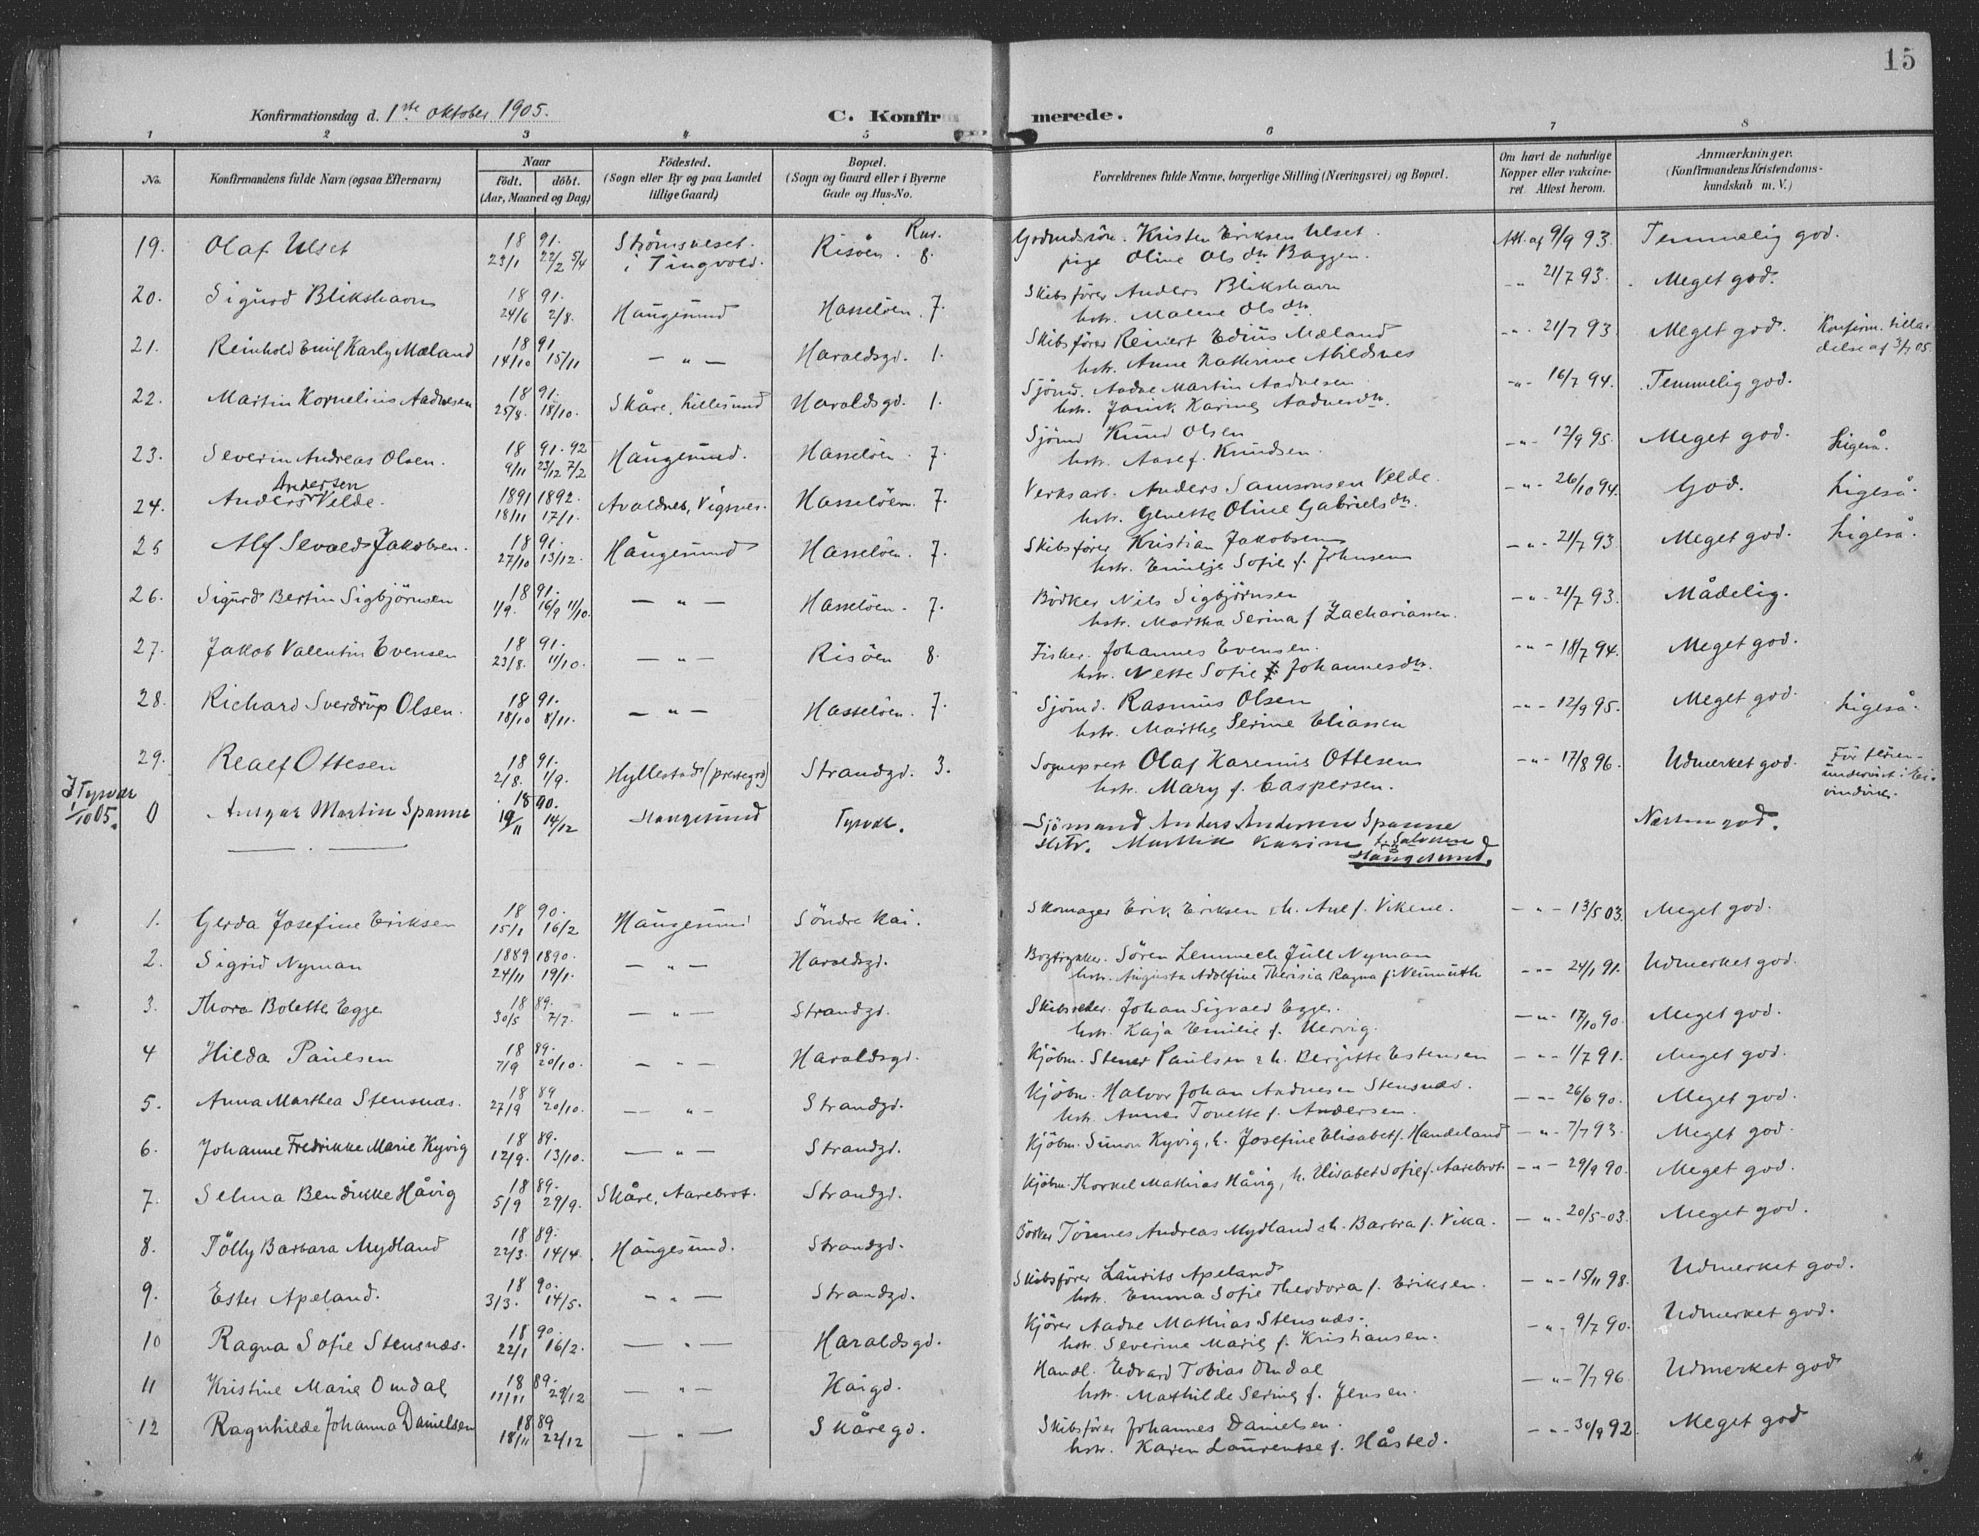 15
Konfirmationsdag d. 1ste oktober 1905. C. Konfirmerede.
1 2 3 4 5 6 7 8
No. Konfirmandens fulde Navn (ogsaa Efternavn) Naar født. døbt. (Aar, Maaned og Dag) Fødested. (Sogn eller By og paa Landet tillige Gaard) Bopæl. (Sogn og Gaard eller i Byerne Gade og Hus-No. Forældrenes fulde Navne, borgerlige Stilling (Næringsvei) og Bopæl. Om havt de naturlige Kopper eller vakcineret. Attest herom. Anmærkninger. (Konfirmandens Kristendomskundskab m. V.)
19. Olaf Ulset 18 91. 23/1 22/2 5/4 Strømsneset i Tingvold. Risøen. 8. Kristen Eriksen Ulset. Att. af 9/9 93. Temmelig god.
pige Oline Olsdtr Baggen.
20. Sigurd Blikshavn 18 91. 24/6 2/8. Haugesund Hasseløen. 7. Skibsfører Anders Blikshavn -"- 21/7 93. Meget god.
hstr. Malene Olsdtr.
21. Reinhold Emil Karly Mæland 18 91 14/10 15/11 — " — Haraldsgd. 1. Skibsfører Reinert Edius Mæland -"- 21/7 93. Meget god. Konfirm. tilladelse af 3/7 05.
hstr. Anne Kathrine Abildsnes
22. Martin Kornelius Aadnesen 18 91. 25/8. 18/10. Skåre, Lillesund Haraldsgd. 1. Sjömd. Aadne Martin Aadnesen -"- 16/7 94. Temmelig god.
hstr. Janik Karine Aadnesdtr.
23. Severin Andreas Olsen. 18 91. 92 9/11 23/12 7/2 Haugesund. Hasseløen. 7. Sjömd Knud Olsen -"- 12/9 95. Meget god. Ligeså.
hstr. Aase f. Knudsen.
24. Anders Andersen Velde. 1891 1892. 18/11 17/1. Avaldnes, Vigsnes. Hasseløen. 7. Verksarb. Anders Samsonsen Velde. -"- 26/10 94. God. Ligeså.
hstr. Genette Oline Gabrielsdtr.
25 Alf Sevald Jakobsen. 18 91. 27/10 13/12. Haugesund Hasseløen. 7. Skibsfører Kristian Jakobsen -"- 21/7 93. Meget god. Ligeså.
hstr. Emilje Sofie f. Johnsen
26. Sigurd Bertin Sigbjørnsen 18 91. 1/9. 16/9 11/10. — " — Hasseløen. 7. Bødker Nils Sigbjørnsen -"- 21/7 93. Mådelig.
hstr. Martha Serina f Zachariassen.
27. Jakob Valentin Evensen 18 91. 23/8. 11/10. — " — Risøen 8. Fisker. Johannes Evensen. -"- 18/7 94. Meget god.
hstr. Nette Sofie Johannesdtr.
28. Richard Sverdrup Olsen. 18 91. 18/10 8/11. — " — Hasseløen. 7. Sjömd. Rasmus Olsen -"- 12/9 95. Meget god. Ligeså.
hstr. Marthe Serine Eliassen
29. Realf Ottesen 18 91. 2/8. 1/9. Hyllestad (prestegrd) Strandgd. 3. Sogneprest Olaf Karenius Ottesen -"- 17/8 96. Udmerket god.
hstr. Mary f. Caspersen.
I Tysvær 1/10 05. 0 Ansgar Martin Spanne 18 90. 19/11 14/12 Haugesund Tysvær. Sjömand Anders Andersen Spanne Næsten god.
Hstr. Marthe Karine Haugesund.
1. Gerda Josefine Eriksen 18 90. 15/1 16/2 Haugesund Søndre Kai. Skomager Erik Eriksen & h. Ane f. Vikene. -"- 13/5 03. Meget god.
2. Sigrid Nyman 1889 1890. 24/11 19/1. — " — Haraldsgd. Bogtrykker. Søren Lemmech Jull Nyman -"- 24/1 91. Udmerket god.
hstr. Augusta Adolfine Theresia Ragna f. Neumuth
3. Thora Bolette Egge 18 89. 30/5 7/7. — " — Strandgd. Skibsreder. Johan Sigvald Egge. -"- 17/10 90. Meget god.
hstr. Kaja Emilie f. Hervig.
4 Hilda Paulsen 18 89. 7/9 20/10. — " — Haraldsgd. Kjøbm. Stener Paulsen & h. Bergitte Estensen -"- 1/7 91. Meget god.
5. Anna Marthea Stensnæs. 18 89 27/9 20/10. — " — Strandgd. Kjøbm. Halvor Johan Aadnesen Stensnæs. -"- 26/6 90. Meget god.
hstr. Anne Tonette f. Andersen.
6. Johanne Fredrikke Marie Kyvig 18 89. 12/9. 13/10. — " — Strandgd. Kjøbm. Simon Kyvig, h. Josefine Elisabet f. Handeland -"- 7/7 93. Meget god.
7. Selma Bendikke Håvig 18 89. 5/9 29/9. Skåre, Aarebrot. Strandgd. Kjøbm. Thorkel Mathias Håvig, h. Elisabet Sofie f. Aarebrot. -"- 29/9 90. Meget god.
8. Tølly Barbara Mydland 18 89. 22/3. 14/4. Haugesund. Strandgd. Bødker Tønnes Andreas Mydland & h. Barbra f. Vika. -"- 20/5 03. Meget god.
9. Ester Apeland. 18 90. 3/3. 14/5. — " — Strandgd. Skibsfører Laurits Apeland -"- 15/11 98. Udmerket god.
hstr. Emma Sofie Theodora f. Eriksen.
10 Ragna Sofie Stensnæs. 18 90. 22/1 16/2. — " — Haraldsgd. Kjører Aadne Mathias Stensnæs. -"- 9/7 90. Udmerket god.
hstr. Severine Marie f. Kristiansen.
11 Kristine Marie Omdal 18 89. 11/11 29/12 — " — Kaigd. Handl. Edvard Tobias Omdal -"- 7/7 96. Udmerket god
hstr. Mathilde Serine f. Jensen.
12 Ragnhilde Johanna Danielsen 18 89 18/11 22/12 — " — Skåregd. Skibsfører Johannes Danielsen. -"- 30/9 92. Meget god
hstr. Karen Laurentse f. Håsted.